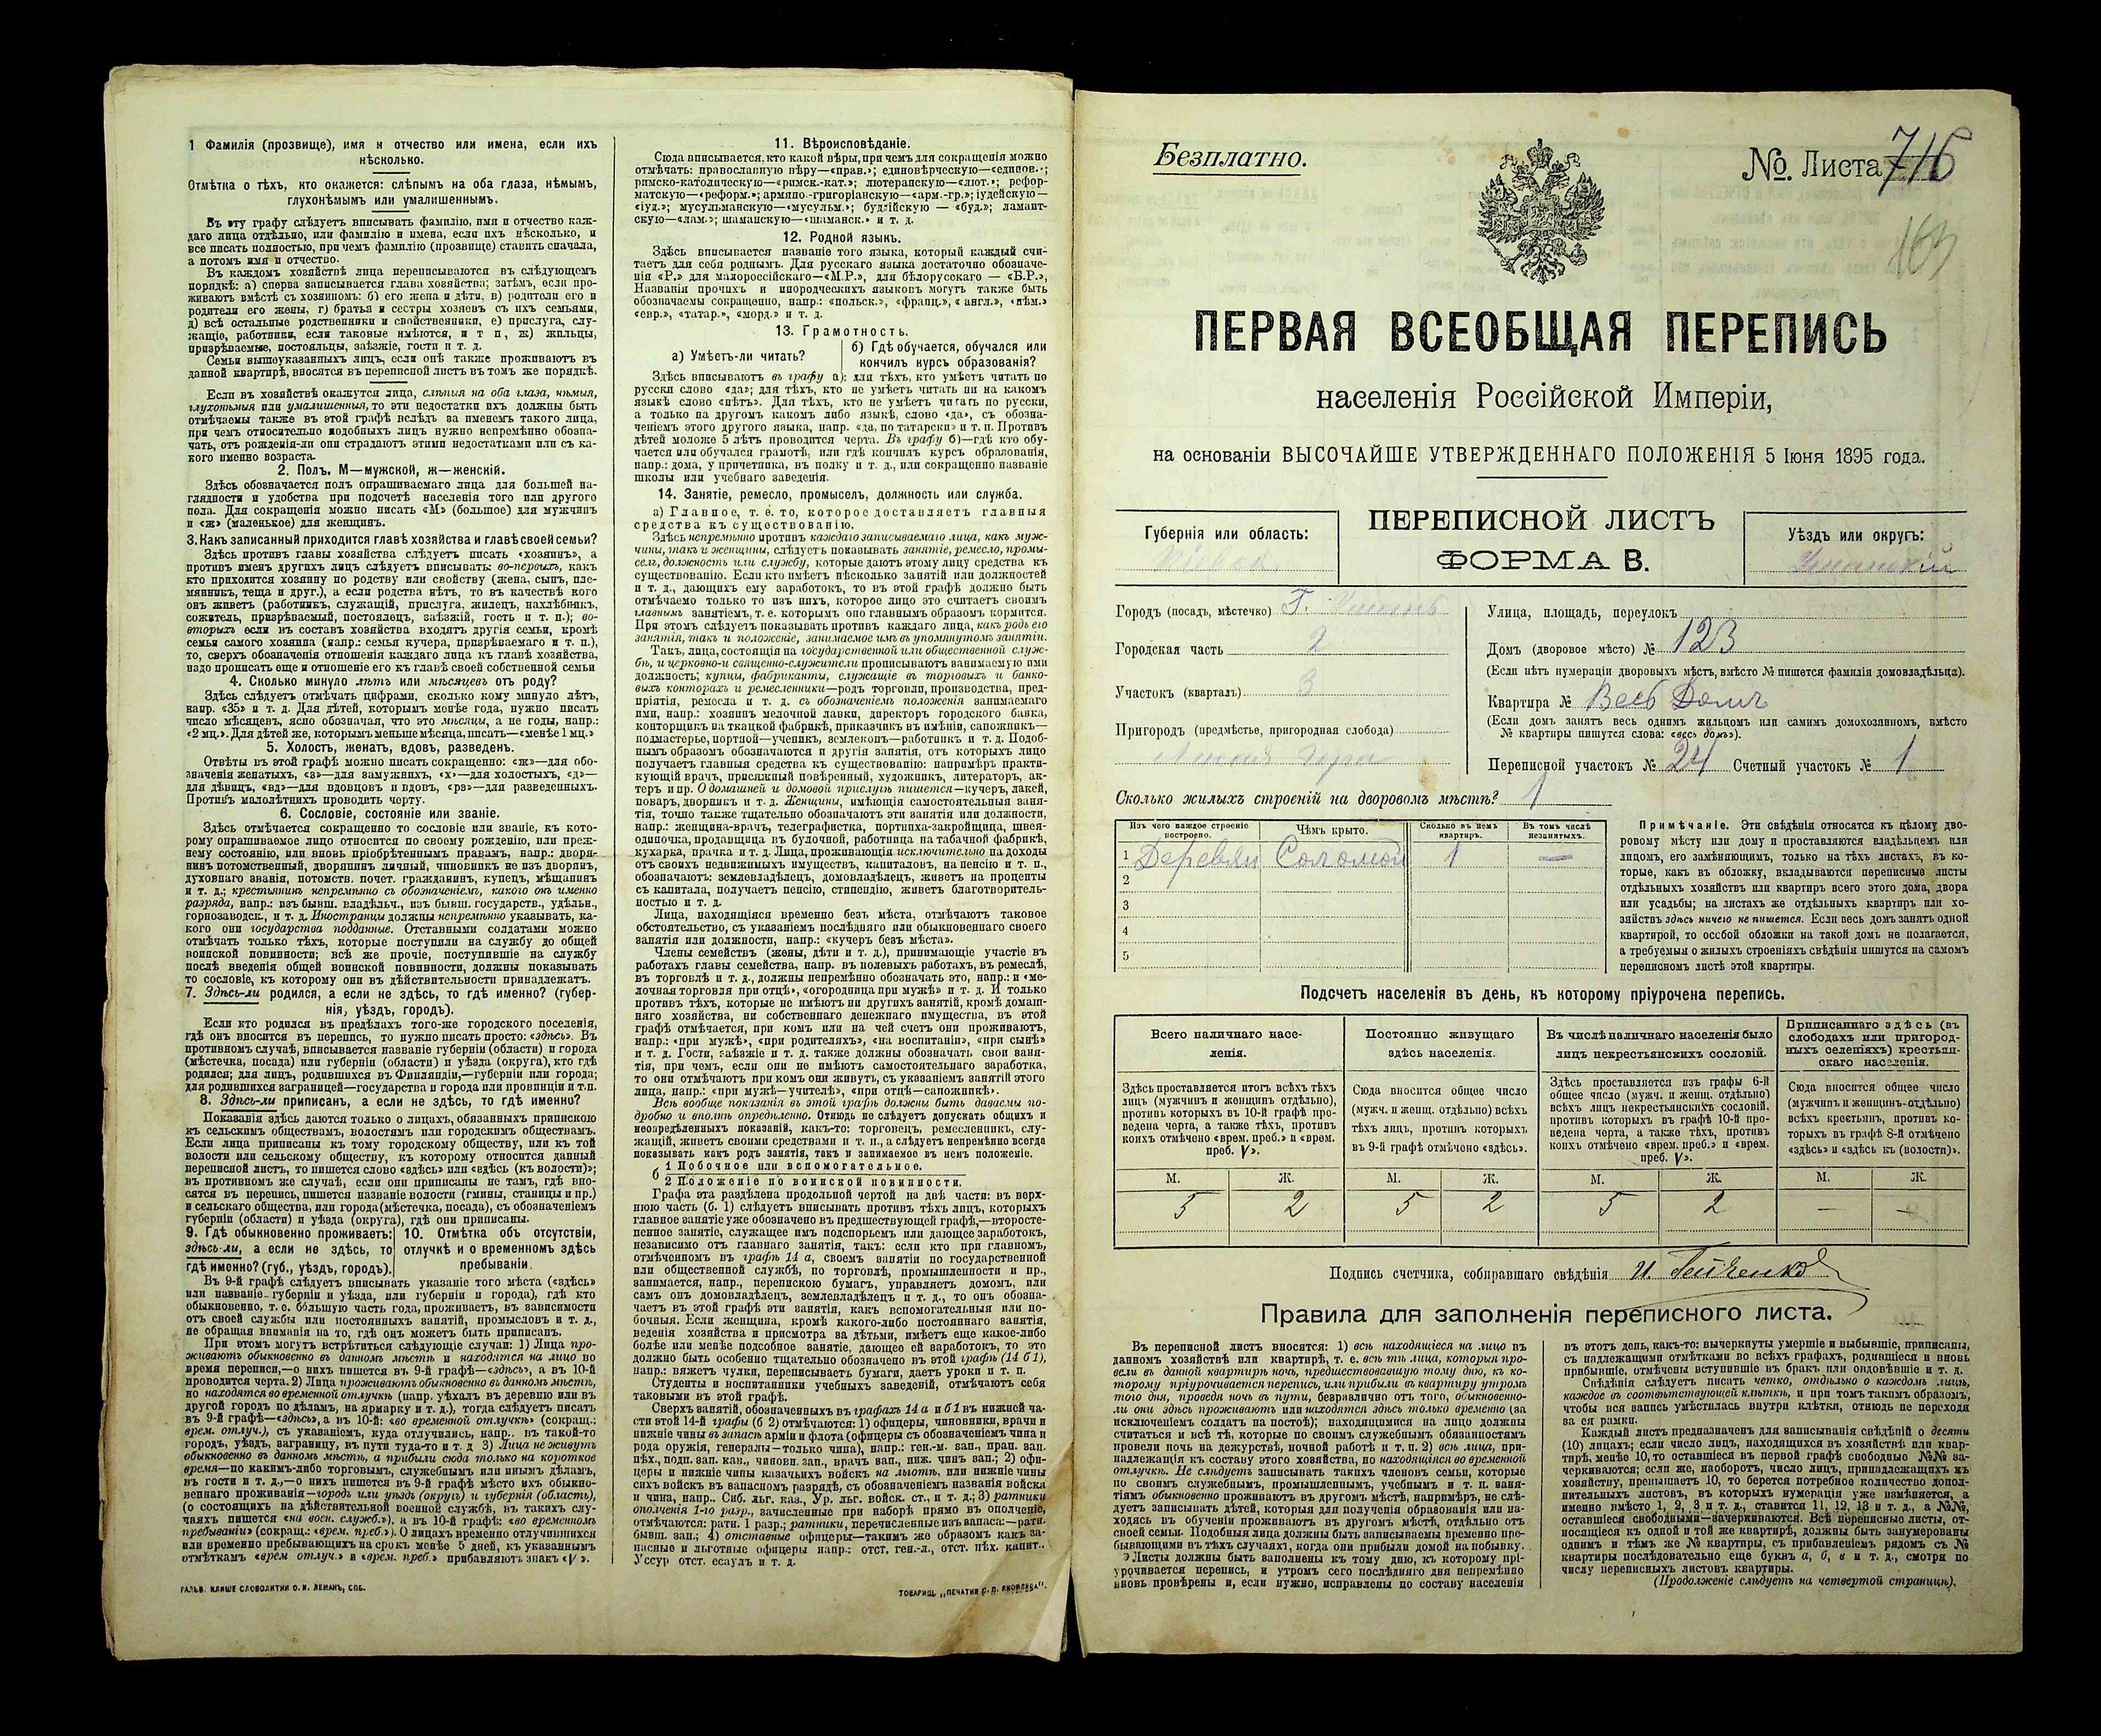 1 Фамилія (прозвище), имя и отчество или имена, если ихъ
нѣсколько.
Отмѣтка о тѣхъ, кто окажется: слѣпымъ на оба глаза, нѣмымъ,
глухонѣмымъ или умалишеннымъ.
Въ эту графу слѣдуетъ вписывать фамилію, имя и отчество каж-
даго лица отдѣльно, или фамилію и имена, если ихъ нѣсколько, и
все писать полностью, при чемъ фамилію (прозвище) ставить сначала,
а потомъ имя и отчество.
Въ каждомъ хозяйствѣ лица переписываются въ слѣдующемъ
порядкѣ: а) сперва записывается глава хозяйства; затѣмъ, если про-
живаютъ вмѣстѣ съ хозяиномъ: б) его жена и дѣти, в) родители его и
родители его жены, г) братья и сестры хозяевъ съ ихъ семьями,
д) всѣ остальные родственники и свойственники, е) прислуга, слу-
жащіе, работники, если таковые имѣются, и т п, ж) жильцы,
призрѣваемые, постояльцы, заѣзжіе, гости и т. п.
Семьи вышеуказанныхъ лицъ, если онѣ также проживаютъ въ
данной квартирѣ, вносятся въ переписной листъ въ томъ же порядкѣ.
Если въ хозяйствѣ окажутся лица, слѣпыя на оба глаза, нѣмыя,
глухонѣмыя или умалишенныя, то эти недостатки ихъ должны быть
отмѣчаемы также въ этой графѣ вслѣдъ за именемъ такого лица,
при чемъ относительно подобныхъ лицъ нужно непремѣнно обозна-
чать, отъ рожденія-ли они страдаютъ этими недостатками или съ ка-
кого именно возраста.
2. Полъ. М—мужской, ж—женскій.
Здѣсь обозначается полъ опрашиваемаго лица для большей на-
глядности и удобства при подсчетѣ населенія того или другого
пола. Для сокращенія можно писать «М» (большое) для мужчинъ
и «ж» (маленькое) для женщинъ.
3. Какъ записанный приходится главѣ хозяйства и главѣ своей семьи?
Здѣсь противъ главы хозяйства слѣдуетъ писать «хозяинъ», а
противъ именъ другихъ лицъ слѣдуетъ вписывать: во-первыхъ, какъ
кто приходится хозяину по родству или свойству (жена, сынъ, пле-
мянникъ, теща и друг.), а если родства нѣтъ, то въ качествѣ кого
онъ живетъ (работникъ, служащій, прислуга, жилецъ, нахлѣбникъ,
сожитель, призрѣваемый, постоялецъ, заѣзжій, гость и т. п.); во-
вторыхъ если въ составъ хозяйства входятъ другія семьи, кромѣ
семьи самого хозяина (напр.: семья кучера, призрѣваемаго и т. п.),
то, сверхъ обозначенія отношенія каждаго лица къ главѣ хозяйства,
надо прописать еще и отношеніе его къ главѣ своей собственной семьи
4. Сколько минуло лѣтъ или мѣсяцевъ отъ роду?
Здѣсь слѣдуетъ отмѣчать цифрами, сколько кому минуло лѣтъ,
напр. «35» и т. д. Для дѣтей, которымъ менѣе года, нужно писать
число мѣсяцевъ, ясно обозначая, что это мѣсяцы, а не годы, напр.:
«2 мц.». Для дѣтей же, которымъ меньше мѣсяца, писать—«менѣе 1 мц.»
5. Холостъ, женатъ, вдовъ, разведенъ.
Отвѣты въ этой графѣ можно писать сокращенно: «ж»—для обо-
значенія женатыхъ, «з»—для замужнихъ, «х»—для холостыхъ, «д»—
для дѣвицъ, «вд»—для вдовцовъ и вдовъ, «рз»—для разведенныхъ.
Противъ малолѣтнихъ проводить черту.
6. Сословіе, состояніе или званіе.
Здѣсь отмѣчается сокращенно то сословіе или званіе, къ кото-
рому опрашиваемое лицо относится по своему рожденію, или преж-
нему состоянію, или вновь пріобрѣтеннымъ правамъ, напр.: дворя-
нинъ потомственный, дворянинъ личный, чиновникъ не изъ дворянъ,
духовнаго званія, потомств. почет. гражданинъ, купецъ, мѣщанинъ
и т. д.; крестьянинъ непремѣнно съ обозначеніемъ, какого онъ именно
разряда, напр.: изъ бывш. владѣльч., изъ бывш. государств., удѣльн.,
горнозаводск., и т. д. Иностранцы должны непремѣнно указывать, ка-
кого они государства подданные. Отставными солдатами можно
отмѣчать только тѣхъ, которые поступили на службу до общей
воинской повинности; всѣ же прочіе, поступившіе на службу
послѣ введенія общей воинской повинности, должны показывать
то сословіе, къ которому они въ дѣйствительности принадлежатъ.
7. Здѣсь-ли родился, а если не здѣсь, то гдѣ именно? (губер-
нія, уѣздъ, городъ).
Если кто родился въ предѣлахъ того-же городского поселенія,
гдѣ онъ вносится въ перепись, то нужно писать просто: «здѣсь». Въ
противномъ случаѣ, вписывается названіе губерніи (области) и города
(мѣстечка, посада) или губерніи (области) и уѣзда (округа), кто гдѣ
родился; для лицъ, родившихся въ Финляндіи,—губерніи или города;
для родившихся заграницей—государства и города или провинціи и т.п.
8. Здѣсь-ли приписанъ, а если не здѣсь, то гдѣ именно?
Показанія здѣсь даются только о лицахъ, обязанныхъ припискою
къ сельскимъ обществамъ, волостямъ или городскимъ обществамъ.
Если лица приписаны къ тому городскому обществу, или къ той
волости или сельскому обществу, къ которому относится данный
переписной листъ, то пишется слово «здѣсь» или «здѣсь (къ волости)»;
въ противномъ же случаѣ, если они приписаны не тамъ, гдѣ вно-
сятся въ перепись, пишется названіе волости (гмины, станицы и пр.)
и сельскаго общества, или города (мѣстечка, посада), съ обозначеніемъ
губерніи (области) и уѣзда (округа), гдѣ они приписаны.
9. Гдѣ обыкновенно проживаетъ: здѣсь-ли, а если не здѣсь, то гдѣ именно? (губ., уѣздъ, городъ).
10. Отмѣтка объ отсутствіи, отлучкѣ и о временномъ здѣсь пребываніи.
Въ 9-й графѣ слѣдуетъ вписывать указаніе того мѣста («здѣсь»
или названіе губерніи и уѣзда, или губерніи и города), гдѣ кто
обыкновенно, т. е. большую часть года, проживаетъ, въ зависимости
отъ своей службы или постоянныхъ занятій, промысловъ и т. д.,
не обращая вниманія на то, гдѣ онъ можетъ быть приписанъ.
При этомъ могутъ встрѣтиться слѣдующіе случаи: 1) Лица про-
живаютъ обыкновенно въ данномъ мѣстѣ и находятся на лицо во
время переписи,—о нихъ пишется въ 9-й графѣ—«здѣсь», а въ 10-й
проводится черта. 2) Лица проживаютъ обыкновенно въ данномъ мѣстѣ,
но находятся во временной отлучкѣ (напр. уѣхалъ въ деревню или въ
другой городъ по дѣламъ, на ярмарку и т. д.), тогда слѣдуетъ писать
въ 9-й графѣ—«здѣсь», а въ 10-й: «во временной отлучкѣ» (сокращ.:
врем. отлуч.), съ указаніемъ, куда отлучились, напр.. въ такой-то
городъ, уѣздъ, заграницу, въ пути туда-то и т. д 3) Лица не живутъ
обыкновенно въ данномъ мѣстѣ, а прибыли сюда только на короткое
время—по какимъ-либо торговымъ, служебнымъ или инымъ дѣламъ,
въ гости и т. д.,—о нихъ пишется въ 9-й графѣ мѣсто ихъ обыкно-
веннаго проживанія—городъ или уѣздъ (округъ) и губернія (область),
(о состоящихъ на дѣйствительной военной службѣ, въ такихъ слу-
чаяхъ пишется «на воен. служб.»), а въ 10-й графѣ: «во временномъ
пребываніи» (сокращ.: «врем. преб.»). О лицахъ временно отлучившихся
или временно пребывающихъ на срокъ менѣе 5 дней, къ указаннымъ
отмѣткамъ «врем отлуч.» и «врем. преб.» прибавляютъ знакъ «V».
ГАЛЬВ. КЛИШЕ СЛОВОЛИТНИ О. И. ЛЕМАНЪ, СПБ.
11. Вѣроисповѣданіе.
Сюда вписывается, кто какой вѣры, при чемъ для сокращенія можно
отмѣчать: православную вѣру—«прав.»; единовѣрческую—«единов.»;
римско-католическую—«римск.-кат.»; лютеранскую—«лют.»; рефор-
матскую—«реформ.»; армяно.-григоріанскую—«арм.-гр.»; іудейскую—
«іуд.»; мусульманскую—«мусульм.»; буддійскую — «буд.»; ламаит-
скую—«лам.»; шаманскую—«шаманск.» и т. д.
12. Родной языкъ.
Здѣсь вписывается названіе того языка, который каждый счи-
таетъ для себя роднымъ. Для русскаго языка достаточно обозначе-
нія «Р.» для малороссійскаго—«М.Р.», для бѣлорусскаго — «Б.Р.»,
Названія прочихъ и инородческихъ языковъ могутъ также быть
обозначаемы сокращенно, напр.: «польск.», «франц.», « англ.», «нѣм.»
«евр.», «татар.», «морд.» и т. д.
13. Грамотность.
а) Умѣетъ-ли читать?
б) Гдѣ обучается, обучался или кончилъ курсъ образованія?
Здѣсь вписываютъ въ графу а): для тѣхъ, кто умѣетъ читать по
русски слово «да»; для тѣхъ, кто не умѣетъ читать ни на какомъ
языкѣ слово «нѣтъ». Для тѣхъ, кто не умѣетъ читать по русски,
а только на другомъ какомъ либо языкѣ, слово «да», съ обозна-
ченіемъ этого другого языка, напр. «да, по татарски» и т. п. Противъ
дѣтей моложе 5 лѣтъ проводится черта. Въ графу б)—гдѣ кто обу-
чается или обучался грамотѣ, или гдѣ кончилъ курсъ образованія,
напр.: дома, у причетника, въ полку и т. д., или сокращенно названіе
школы или учебнаго заведенія.
14. Занятіе, ремесло, промыселъ, должность или служба.
а) Главное, т. е. то, которое доставляетъ главныя
средства къ существованію.
Здѣсь непремѣнно противъ каждаго записываемаго лица, какъ муж-
чины, такъ и женщины, слѣдуетъ показывать занятіе, ремесло, промы-
селъ, должность или службу, которые даютъ этому лицу средства къ
существованію. Если кто имѣетъ нѣсколько занятій или должностей
и т. д., дающихъ ему заработокъ, то въ этой графѣ должно быть
отмѣчаемо только то изъ нихъ, которое лицо это считаетъ своимъ
главнымъ занятіемъ, т. е. которымъ оно главнымъ образомъ кормится.
При этомъ слѣдуетъ показывать противъ каждаго лица, какъ родъ его
занятія, такъ и положеніе, занимаемое имъ въ упомянутомъ занятіи.
Такъ, лица, состоящія на государственной или общественной служ-
бѣ, и церковно-и священно-служители прописываютъ занимаемую ими
должность; купцы, фабриканты, служащіе въ торговыхъ и банко-
выхъ конторахъ и ремесленники—родъ торговли, производства, пред-
пріятія, ремесла и т. д. съ обозначеніемъ положенія занимаемаго
ими, напр.: хозяинъ мелочной лавки, директоръ городского банка,
конторщикъ на ткацкой фабрикѣ, приказчикъ въ имѣніи, сапожникъ—
подмастерье, портной—ученикъ, землекопъ—работникъ и т. д. Подоб-
нымъ образомъ обозначаются и другія занятія, отъ которыхъ лицо
получаетъ главныя средства къ существованію: напримѣръ практи-
кующій врачъ, присяжный повѣренный, художникъ, литераторъ, ак-
теръ и пр. О домашней и домовой прислугѣ пишется—кучеръ, лакей,
поваръ, дворникъ и т. д. Женщины, имѣющія самостоятельныя заня-
тія, точно также тщательно обозначаютъ эти занятія или должности,
напр.: женщина-врачъ, телеграфистка, портниха-закройщица, швея-
одиночка, продавщица въ булочной, работница на табачной фабрикѣ,
кухарка, прачка и т. д. Лица, проживающія исключительно на доходы
отъ своихъ недвижимыхъ имуществъ, капиталовъ, на пенсію и т. п.,
обозначаютъ: землевладѣлецъ, домовладѣлецъ, живетъ на проценты
съ капитала, получаетъ пенсію, стипендію, живетъ благотворитель-
ностью и т. д.
Лица, находящіяся временно безъ мѣста, отмѣчаютъ таковое
обстоятельство, съ указаніемъ послѣдняго или обыкновеннаго своего
занятія или должности, напр.: «кучеръ безъ мѣста».
Члены семействъ (жены, дѣти и т. д.), принимающіе участіе въ
работахъ главы семейства, напр. въ полевыхъ работахъ, въ ремеслѣ,
въ торговлѣ и т. д., должны непремѣнно обозначать это, напр.: и «ме-
лочная торговля при отцѣ», «огородница при мужѣ» и т. д. И только
противъ тѣхъ, которые не имѣютъ ни другихъ занятій, кромѣ домаш-
няго хозяйства, ни собственнаго денежнаго имущества, въ этой
графѣ отмѣчается, при комъ или на чей счетъ они проживаютъ,
напр.: «при мужѣ», «при родителяхъ», «на воспитаніи», «при сынѣ»
и т. д. Гости, заѣзжіе и т. д. также должны обозначать свои заня-
тія, при чемъ, если они не имѣютъ самостоятельнаго заработка,
то они отмѣчаютъ при комъ они живутъ, съ указаніемъ занятій этого
лица, напр.: «при мужѣ—учителѣ», «при отцѣ—сапожникѣ».
Всѣ вообще показанія въ этой графѣ должны быть даваемы по-
дробно и вполнѣ опредѣленно. Отнюдь не слѣдуетъ допускать общихъ и
неопредѣленныхъ показаній, какъ-то: торговецъ, ремесленникъ, слу-
жащій, живетъ своими средствами и т. п., а слѣдуетъ непремѣнно всегда
показывать какъ родъ занятія, такъ и занимаемое въ немъ положеніе.
б 1 Побочное или вспомогательное.
2 Положеніе по воинской повинности.
Графа эта раздѣлена продольной чертой на двѣ части: въ верх-
нюю часть (б. 1) слѣдуетъ вписывать противъ тѣхъ лицъ, которыхъ
главное занятіе уже обозначено въ предшествующей графѣ,—второсте-
пенное занятіе, служащее имъ подспорьемъ или дающее заработокъ,
независимо отъ главнаго занятія, такъ: если кто при главномъ,
отмѣченномъ въ графѣ 14 а, своемъ занятіи по государственной
или общественной службѣ, по торговлѣ, промышленности и пр.,
занимается, напр., перепискою бумагъ, управляетъ домомъ, или
самъ онъ домовладѣлецъ, землевладѣлецъ и т. д., то онъ обозна-
чаетъ въ этой графѣ эти занятія, какъ вспомогательныя или по-
бочныя. Если женщина, кромѣ какого-либо постояннаго занятія,
веденія хозяйства и присмотра за дѣтьми, имѣетъ еще какое-либо
болѣе или менѣе подсобное занятіе, дающее ей заработокъ, то это
должно быть особенно тщательно обозначено въ этой графѣ (14 б 1),
напр.: вяжетъ чулки, переписываетъ бумаги, даетъ уроки и т. п.
Студенты и воспитанники учебныхъ заведеній, отмѣчаютъ себя
таковыми въ этой графѣ.
Сверхъ занятій, обозначенныхъ въ графахъ 14 а и б 1 въ нижней ча-
сти этой 14-й графы (б 2) отмѣчаются: 1) офицеры, чиновники, врачи и
нижніе чины въ запасѣ арміи и флота (офицеры съ обозначеніемъ чина и
рода оружія, генералы—только чина), напр.: ген.-м. зап., прап. зап.
пѣх., подп. зап. кав., чиновн. зап., врачъ зап., ниж. чинъ зап.; 2) офи-
церы и нижніе чины казачьихъ войскъ на льготѣ, или нижніе чины
сихъ войскъ въ запасномъ разрядѣ, съ обозначеніемъ названія войска
и чина, напр.. Сиб. льг. каз., Ур. льг. войск. ст., и т. д.; 3) ратники
ополченія 1-го разр., зачисленные при наборѣ прямо въ ополченіе,
отмѣчаются: ратн. 1 разр.; ратники, перечисленные изъ запаса:—ратн.
бывш. зап.; 4) отставные офицеры—такимъ же образомъ какъ за-
пасные и льготные офицеры напр.: отст. ген.-л., отст. пѣх. капит..
Уссур отст. есаулъ и т. д.
ТОВАРИЩ. „ПЕЧАТНИ С. П. ЯКОВЛЕВА".
Безплатно.
№. Листа 716
163
ПЕРВАЯ ВСЕОБЩАЯ ПЕРЕПИСЬ
населенія Россійской Имперіи,
на основаніи ВЫСОЧАЙШЕ УТВЕРЖДЕННАГО ПОЛОЖЕНІЯ 5 Іюня 1895 года.
ПЕРЕПИСНОЙ ЛИСТЪ
ФОРМА В.
Губернія или область:
Уѣздъ или округъ:
Уманскій
Городъ (посадъ, мѣстечко) Г. Умань
Городская часть 2
Участокъ (кварталъ) 3
Пригородъ (предмѣстье, пригородная слобода)
Лысая гора
Улица, площадь, переулокъ
Домъ (дворовое мѣсто) № 123
(Если нѣтъ нумераціи дворовыхъ мѣстъ, вмѣсто № пишется фамилія домовладѣльца).
Квартира № Весь Домъ
(Если домъ занятъ весь однимъ жильцомъ или самимъ домохозяиномъ, вмѣсто
№ квартиры пишутся слова: «весь домъ»).
Переписной участокъ № 24 Счетный участокъ № 1
Сколько жилыхъ строеній на дворовомъ мѣстѣ? 1
Изъ чего каждое строеніе построено.
Чѣмъ крыто.
Сколько въ немъ квартиръ.
Въ томъ числѣ незанятыхъ.
1 Деревян Соломой 1 —
2
3
4
5
Примѣчаніе. Эти свѣдѣнія относятся къ цѣлому дво-
ровому мѣсту или дому и проставляются владѣльцемъ или
лицомъ, его замѣняющимъ, только на тѣхъ листахъ, въ ко-
торые, какъ въ обложку, вкладываются переписные листы
отдѣльныхъ хозяйствъ или квартиръ всего этого дома, двора
или усадьбы; на листахъ же отдѣльныхъ квартиръ или хо-
зяйствъ здѣсь ничего не пишется. Если весь домъ занятъ одной
квартирой, то особой обложки на такой домъ не полагается,
а требуемыя о жилыхъ строеніяхъ свѣдѣнія пишутся на самомъ
переписномъ листѣ этой квартиры.
Подсчетъ населенія въ день, къ которому пріурочена перепись.
Всего наличнаго насе-
ленія.
Здѣсь проставляется итогъ всѣхъ тѣхъ
лицъ (мужчинъ и женщинъ отдѣльно),
противъ которыхъ въ 10-й графѣ про-
ведена черта, а также тѣхъ, противъ
коихъ отмѣчено «врем. преб.» и «врем.
преб. V».
Постоянно живущаго
здѣсь населенія.
Сюда вносится общее число
(мужч. и женщ. отдѣльно) всѣхъ
тѣхъ лицъ, противъ которыхъ
въ 9-й графѣ отмѣчено «здѣсь».
Въ числѣ наличнаго населенія было
лицъ некрестьянскихъ сословій.
Здѣсь проставляется изъ графы 6-й
общее число (мужч. и женщ. отдѣльно)
всѣхъ лицъ некрестьянскихъ сословій,
противъ которыхъ въ графѣ 10-й про-
ведена черта, а также тѣхъ, противъ
коихъ отмѣчено «врем. преб.» и «врем.
преб. V».
Приписаннаго здѣсь (въ
слободахъ или пригород-
ныхъ селеніяхъ) крестьян-
скаго населенія.
Сюда вносится общее число
(мужчинъ и женщинъ отдѣльно)
всѣхъ крестьянъ, противъ ко-
торыхъ въ графѣ 8-й отмѣчено
«здѣсь» и «здѣсь къ (волости)».
М. Ж. М. Ж. М. Ж. М. Ж.
5 2 5 2 5 2 — —
Подпись счетчика, собиравшаго свѣдѣнія
Правила для заполненія переписного листа.
Въ переписной листъ вносятся: 1) всѣ находящіеся на лицо въ
данномъ хозяйствѣ или квартирѣ, т. е. всѣ тѣ лица, которыя про-
вели въ данной квартирѣ ночь, предшествовавшую тому дню, къ ко-
торому пріурочивается перепись, или прибыли въ квартиру утромъ
того дня, проведя ночь въ пути, безразлично отъ того, обыкновенно-
ли они здѣсь проживаютъ или находятся здѣсь только временно (за
исключеніемъ солдатъ на постоѣ); находящимися на лицо должны
считаться и всѣ тѣ, которые по своимъ служебнымъ обязанностямъ
провели ночь на дежурствѣ, ночной работѣ и т. п. 2) всѣ лица, при-
надлежащія къ составу этого хозяйства, но находящіяся во временной
отлучкѣ. Не слѣдуетъ записывать такихъ членовъ семьи, которые
по своимъ служебнымъ, промышленнымъ, учебнымъ и т. п. заня-
тіямъ обыкновенно проживаютъ въ другомъ мѣстѣ, напримѣръ, не слѣ-
дуетъ записывать дѣтей, которыя для полученія образованія или на-
ходясь въ обученіи проживаютъ въ другомъ мѣстѣ, отдѣльно отъ
своей семьи. Подобныя лица должны быть записываемы временно пре-
бывающими въ тѣхъ случаяхъ, когда они прибыли домой на побывку.
Листы должны быть заполнены къ тому дню, къ которому прі-
урочивается перепись, и утромъ сего послѣдняго дня непремѣнно
вновь провѣрены и, если нужно, исправлены по составу населенія
въ этотъ день, какъ-то: вычеркнуты умершіе и выбывшіе, приписаны,
съ надлежащими отмѣтками во всѣхъ графахъ, родившіеся и вновь
прибывшіе, отмѣчены вступившіе въ бракъ или овдовѣвшіе и т. д.
Свѣдѣнія слѣдуетъ писать четко, отдѣльно о каждомъ лицѣ,
каждое въ соотвѣтствующей клѣткѣ, и при томъ такимъ образомъ,
чтобы вся запись умѣстилась внутри клѣтки, отнюдь не переходя
за ея рамки.
Каждый листъ предназначенъ для записыванія свѣдѣній о десяти
(10) лицахъ; если число лицъ, находящихся въ хозяйствѣ или квар-
тирѣ, менѣе 10, то оставшіеся въ первой графѣ свободные №№ за-
черкиваются; если же, наоборотъ, число лицъ, принадлежащихъ къ
хозяйству, превышаетъ 10, то берется потребное количество допол-
нительныхъ листовъ, въ которыхъ нумерація уже измѣняется, а
именно вмѣсто 1, 2, 3 и т. д., ставится 11, 12, 13 и т. д., а №№,
оставшіеся свободными—зачеркиваются. Всѣ переписные листы, от-
носящіеся къ одной и той же квартирѣ, должны быть занумерованы
однимъ и тѣмъ же № квартиры, съ прибавленіемъ рядомъ съ №
квартиры послѣдовательно еще буквъ а, б, в и т. д., смотря по
числу переписныхъ листовъ квартиры.
(Продолженіе слѣдуетъ на четвертой страницѣ).